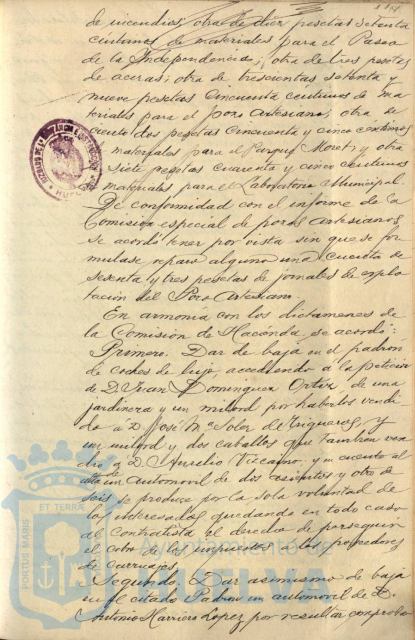 de incendios; otra de diez pesetas setenta
céntimos de materiales para el Paseo
de la Independencia; otra de tres pesetas
de aceras; otra de trescientas setenta y
nueve pesetas cincuenta céntimos de ma
teriales para el pozo Artesiano; otra de
ciento dos pesetas cincuenta y cinco céntimos
materiales para el Parque Moret; y otra
siete pesetas cuarenta y cinco céntimos
materiales para el Laboratorio Municipal.
De conformidad con el informe de la
Comisión especial de pozos Artesianos
se acordó tener por vista sin que se for
mulase reparo alguno una cuenta de
sesenta y tres pesetas de jornales de explo
tación del Pozo Artesiano.
En armonía con los dictámenes de
la Comisión de Hacienda se acordó:
Primero. Dar de baja en el padrón
de coches de lujo, accediendo a la petición
de D. Juan Dominguez Ortiz de una
jardinera y un milord por haberlos vendi
do a D. José Mª Soler de
un milord y dos caballos que tambien ven
dió a D. Aurelio Vizcaino, y en cuanto al
alta un automovil de dos asientos y otro de
seis se produce por la sola voluntad de
los interesados quedando en todo caso
al Contratista el derecho de perseguir
el cobro de los impuestos a los poseedores
de carruajes.
Segundo. Dar asimismo de baja
en el citado Padrón un automovil de D.
Antonio Marrero Lopez por resultar comproba
PORTUS MARIS ET TERRAE
Ayuntamiento de
HUELVA